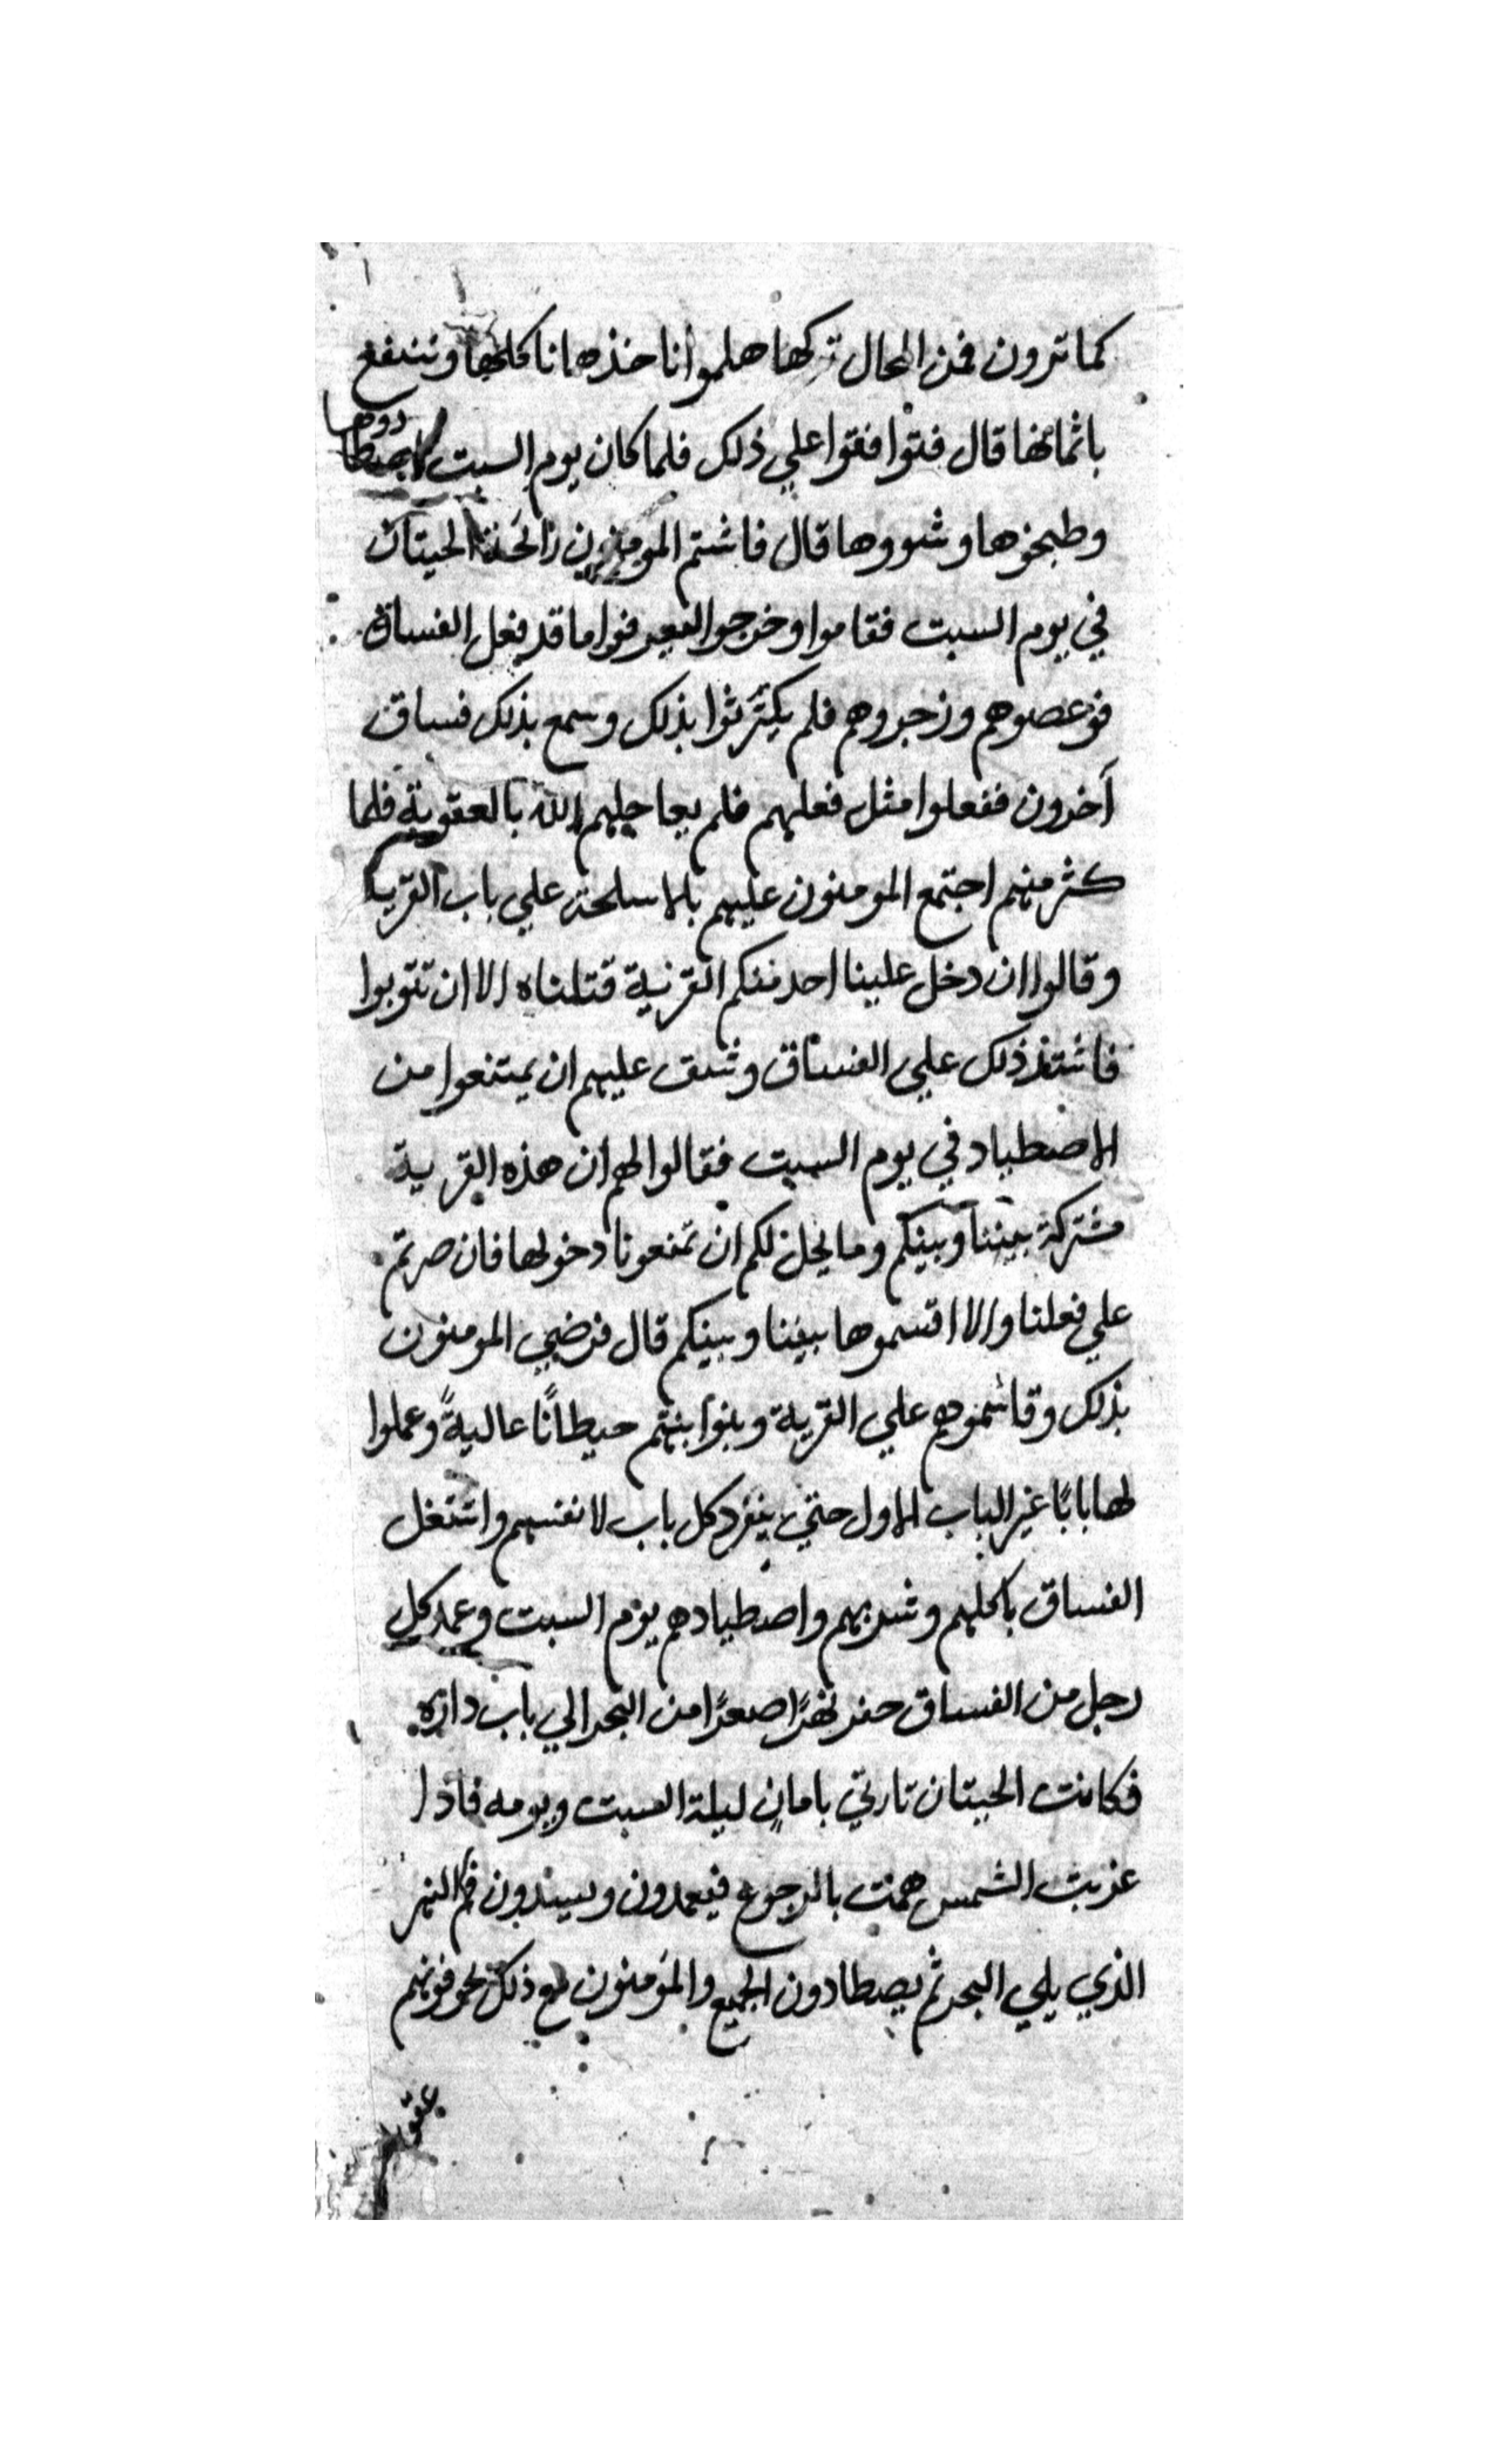 كما ترون فمن المحال تركها هلموا ناخذها ناكلها وننتفع
باثمانها قال فتوافقوا علي ذلك فلما كان يوم السبت اصطادوها
وطبخوها وشووها قال فاشتم المومنون رائحة الحيتان
في يوم السبت فقاموا وخرجوا فعرفوا ما قد فعل الفساق
فوعصوهم وزجروهم فلم يكترثوا بذلك وسمع بذلك فساق
آخرون ففعلوا مثل فعلهم فلم يعاجلهم الله بالعقوبة فلما
كثر منهم اجتمع المومنون عليهم بالاسلحة علي باب القرية
وقالوا ان دخل علينا احد منكم القرية قتلناه الا ان تتوبوا
فاشتد ذلك علي الفساق وشق عليهم ان يمتنعوا من
الاصطياد في يوم السبت فقالوا لهم ان هذه القرية
مشتركة بيننا وبينكم وما يحل لكم ان تمنعونا دخولها فان صرتم
علي فعلنا والا اقسموها بيننا وبينكم قال فرضي المومنون
بذلك وقاسموهم علي القرية وبنوا بينهم حيطانًا عاليةً وعملوا
لها بابًا غير الباب الاول حتي ينفرد كل باب لانفسهم واشتغل
الفساق باكلهم وشربهم واصطيادهم يوم السبت وعمد كل
رجل من الفساق حفر نهرًا صغرًا من البحر الي باب داره
فكانت الحيتان تاتي بامانٍ ليلة السبت ويومه فاذا
غربت الشمس همت بالرجوع فيعمدون ويسدون فم النهر
الذي يلي البحر ثم يصطادون الجميع والمؤمنون مع ذلك يخوفونهم
عقو